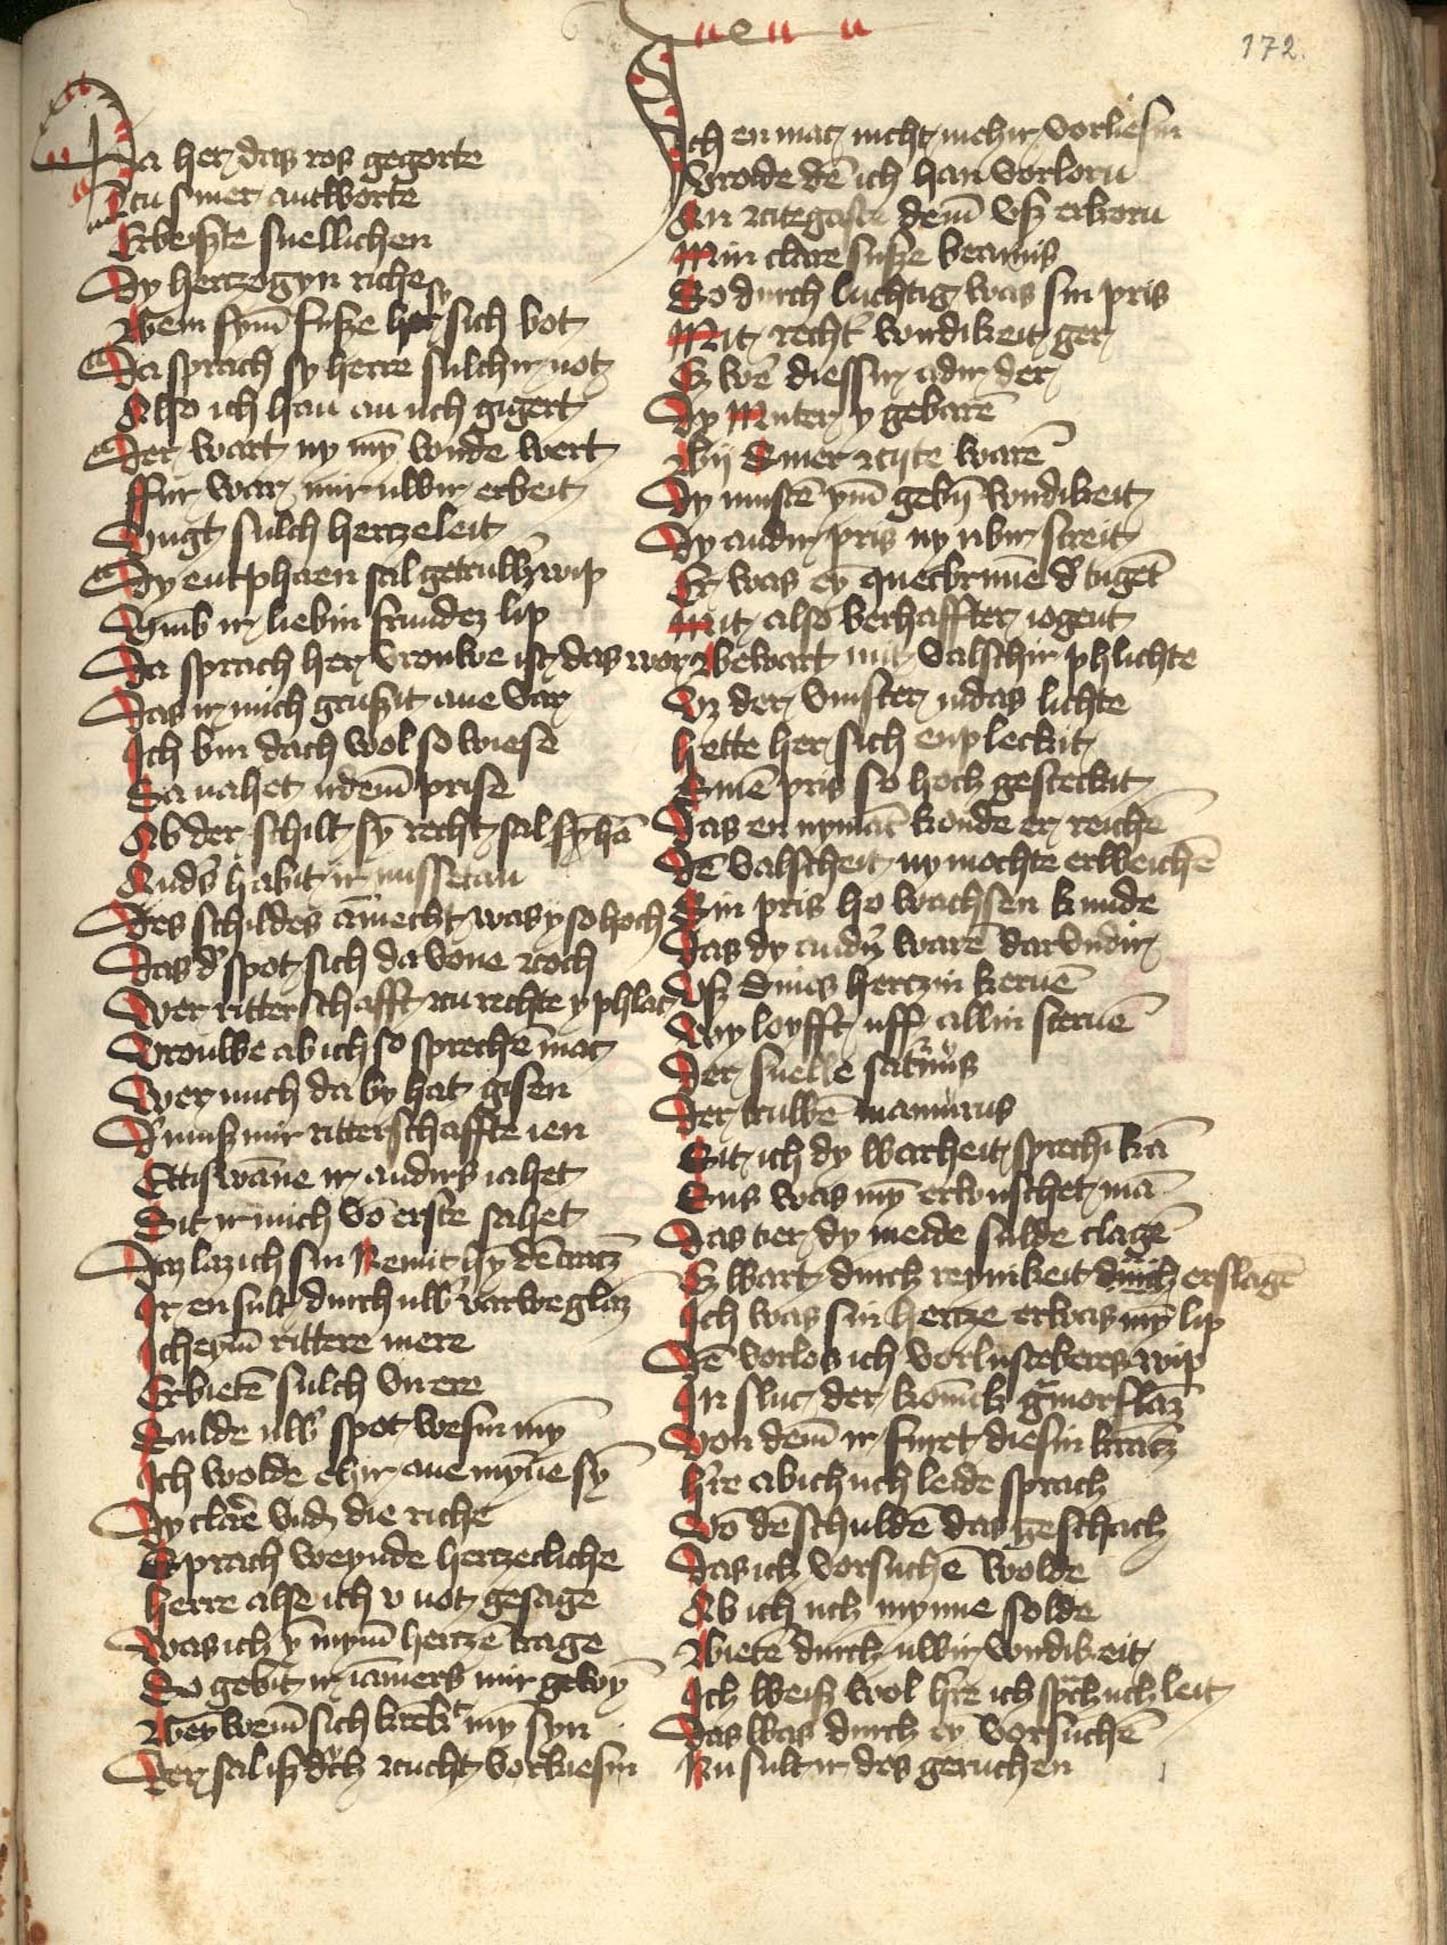 172.
Da her das ros gegorte
Zcu siner antworte
Erbeiszte snellichen
Dy hertzogyn riche
Wem sym fusze her sy sich bot
Da sprach sy herre sulchir not
Also ich han an uch gigert
Der wart ny my wirde wert
Fur war mir uwir erbeit
Vugt sulch hertzeleit
Dy entphaen sal getruwz wip
Vmb ir liebin frundez lip
Da sprach her vrouwe ist das wor
Das ir mich gruszit ane var
Ich bin dach wol so wiese
Ga nahet ir dem prise
Ab der schilt sy recht sal syhan
Anders habit ir missetan
Des schildes ammecht was y so hoch
Das der spot sich da vone zcoch
Wer ritterschafft zcu rechte y phlac
Vrouwe ab ich so spreche mac
Wer mich da by hat gisen
Der musz mir ritterschaffte ien
Ettiswanne ir andirs iahet
Sit ir mich von erste sahet
Daz laz ich sin Nemit hy den cratz
Ir en sult durch uwer varwe glaz
Icheym rittere mere
Erbieten sulch unere
Sulde uwer spot wesin myn
Ich wolde ehir ane mynne syn
Dy clare und die riche
Sprach weynde hertzecliche
Herre alse ich u not gesage
Was ich yn mynem hertzen trage
So gebit ir iamers mir gewyn
Wey wem sich krenkt my syn
Der sal isz durch zcucht vorkiesin
Ich en mac nicht mehir vorliesin
Vroide den ich han vorlorn
An zcitegaste dem usz erkorn
Min clare susze beamis
So durchluchtig was sin pris
Mit rechter wirdikeit ger
Ez wer diessir adir der
Dy Muter y gebaren
By Siner zcijte waren
Dy musten ym gebin wirdikeit
Dy andir pris ny ubir streit
Er was eyn quecbrunne der tuget
Mit also berhaffter iogent
Bewart mit valschir phlichte
Uz der vinster indas lichte
hette her sich enpleckit
Sinen pris so hoch gesteckit
Das en nymant konde er reichen
Den valscheit ny mochte erweichen
Sin pris ho wachsen kunde
Das dy andern waren dar undir
Usz Sines hertzin kernen
Wy loyfft uff allin sternen
Der snelle saturnus
Der truwen mannirus
Sit ich dy warheit sprechin kan
Sus was myn erwuschet man
Das tier dy meide sulde clagen
Ez wart durch reynikeit erslagen
Ich was sin hertze er was myn lip
Den vorlos ich vorlusteberes wip
In sluc der konick gramorflanz
Von dem ir furet diesin krantz
Herre ab ich uch leide sprach
Von den schulden das geschach
Das ich vorsuchen wolde
Ab ich uch mynne solde
Bieten durch uwir wirdikeit
Ich weisz wol herre ich sprach uch leit
Das was durch ey vorsuchen
Nu sult ir des geruchen